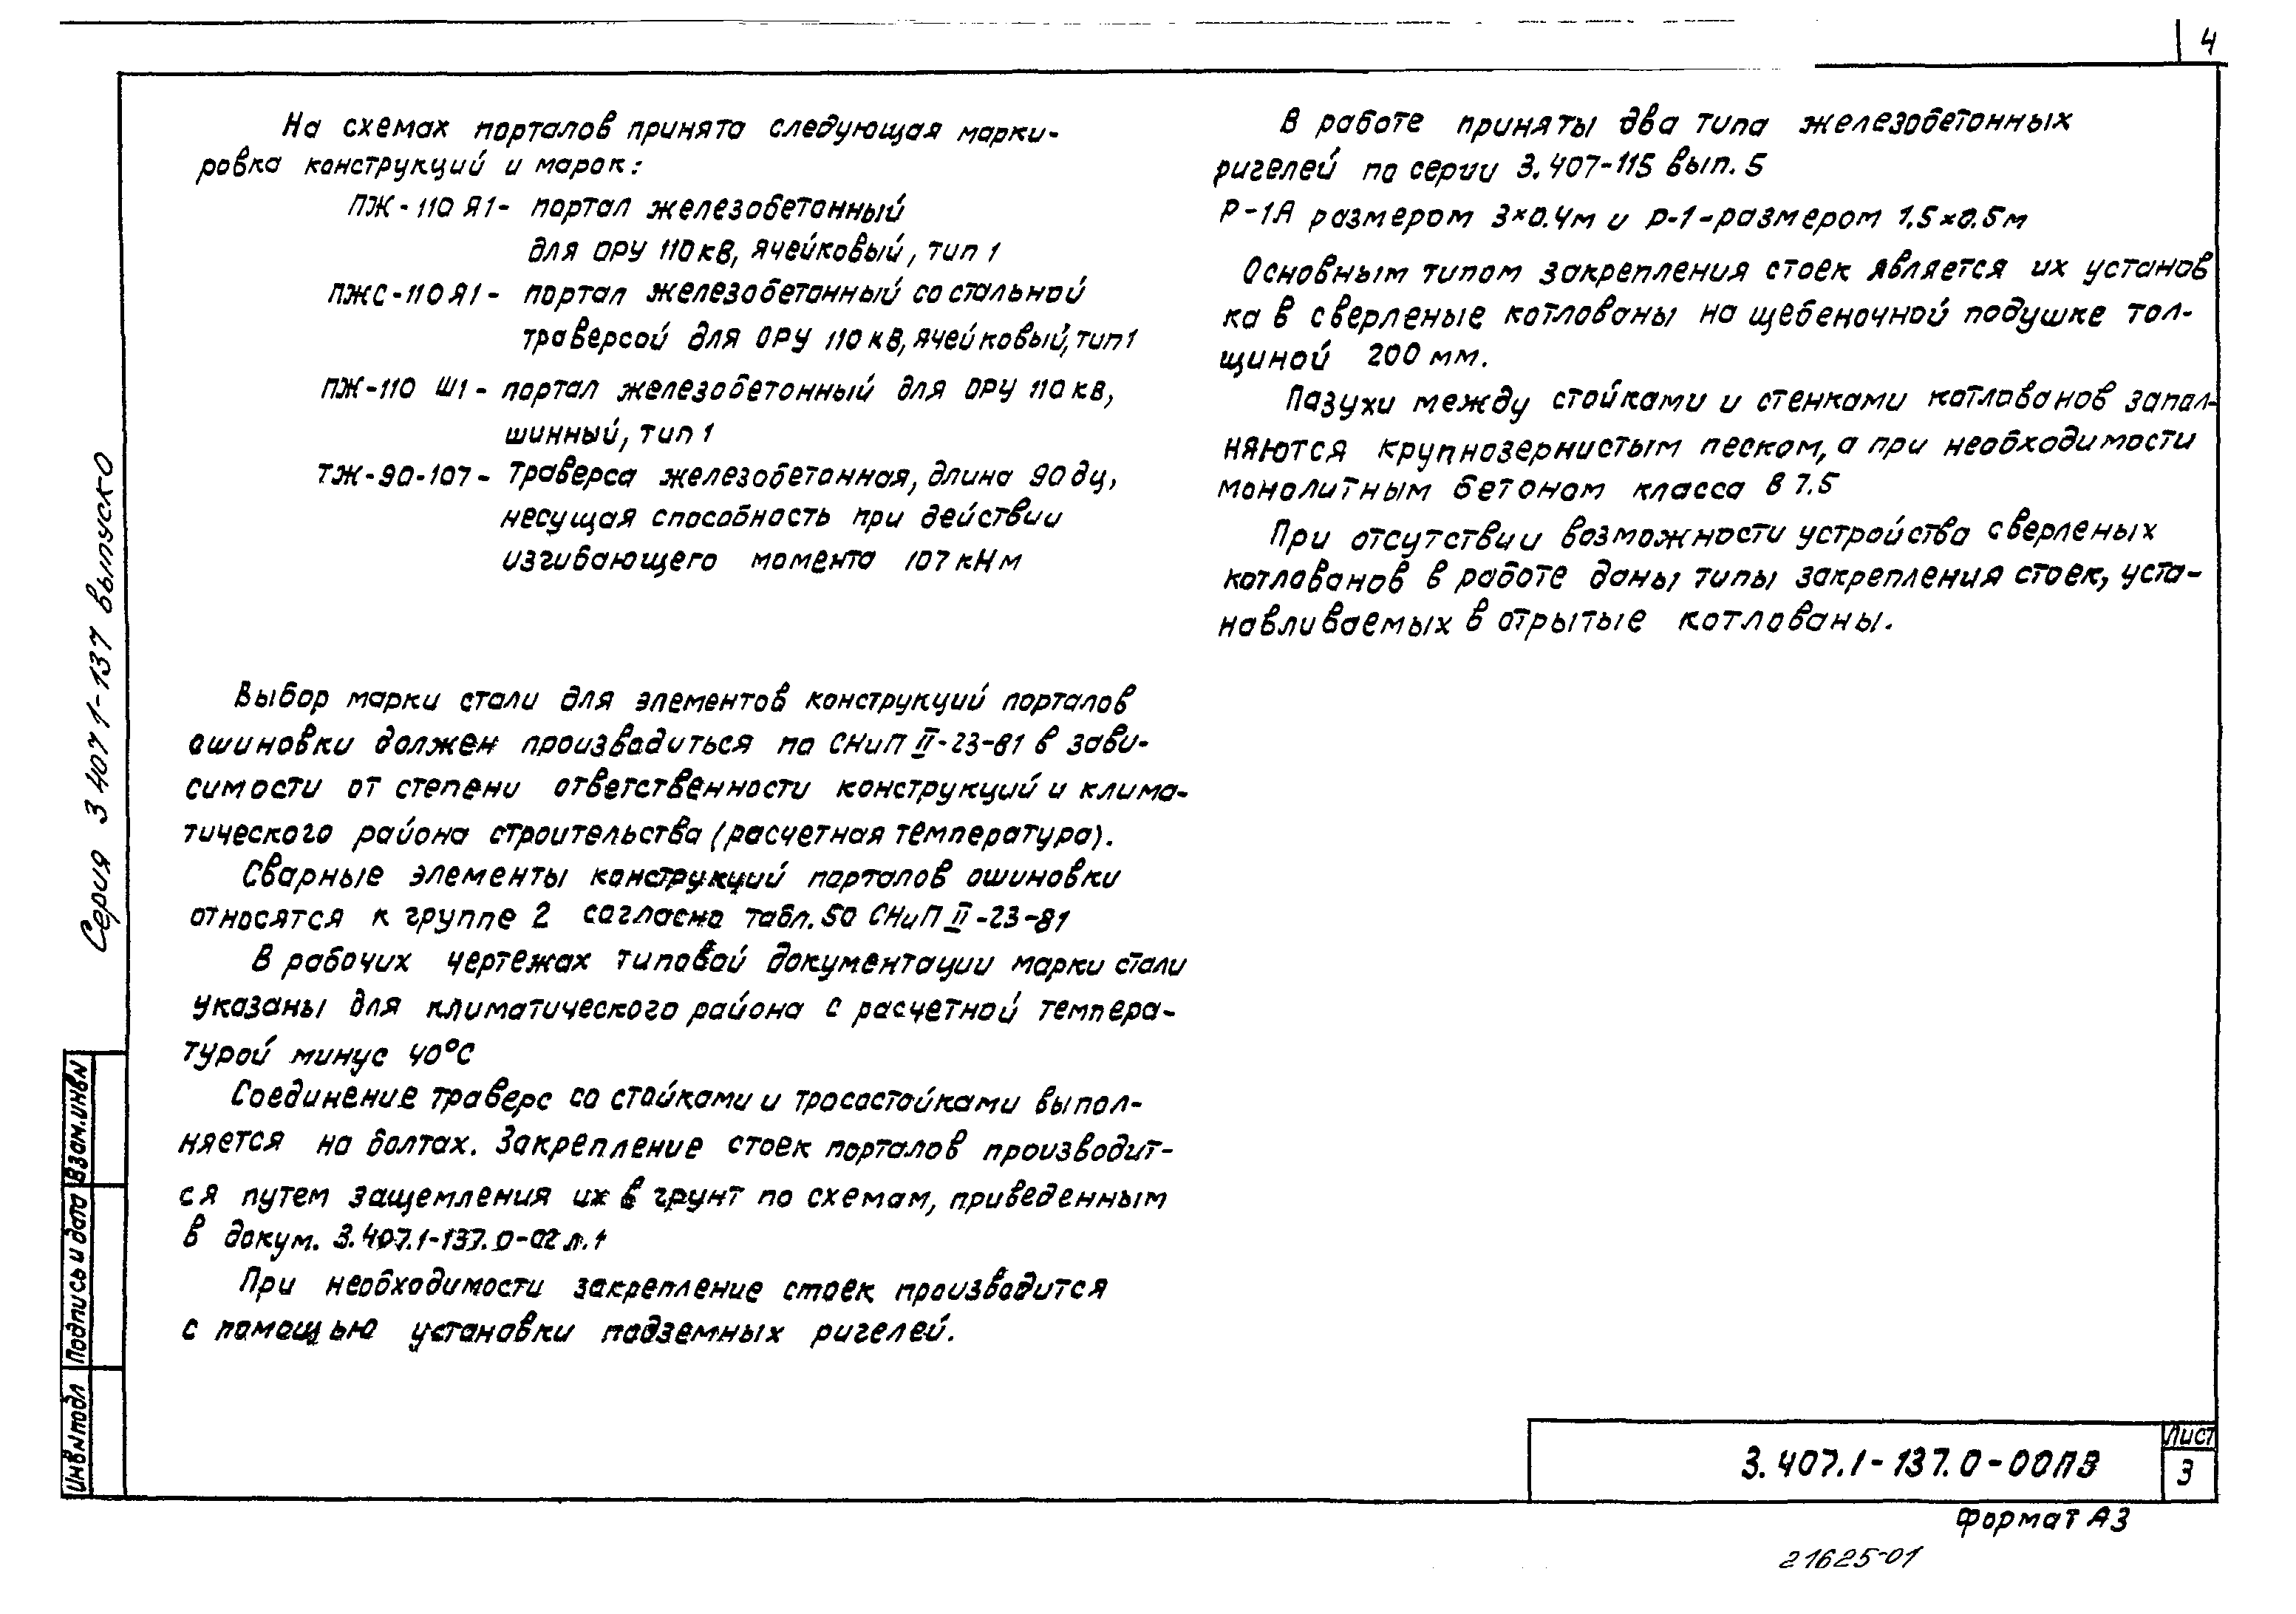 4
На схемах порталов принята следующая марки-
ровка конструкций и марок:
ПЖ-110 Я1- портал железобетонный
для ОРУ 110 кВ, ячейковый, тип 1
ПЖС-110Я1- портал железобетонный со стальной
траверсой для ОРУ 110 кВ, ячейковый, тип 1
ПЖ-110 Ш1- портал железобетонный для ОРУ 110 кВ,
шинный, тип 1
ТЖ-90-107- Траверса железобетонная, длина 90 дц,
несущая способность при действии
изгибающего момента 107 кНм
Выбор марки стали для элементов конструкций порталов
ошиновки должен производиться по СНиП II-23-81 в зави-
симости от степени ответственности конструкций и клима-
тического района строительства (расчетная температура).
Сварные элементы конструкций порталов ошиновки
относятся к группе 2 согласно табл. 50 СНиП II-23-81
В рабочих чертежах типовой документации марки стали
указаны для климатического района с расчетной темпера-
турой минус 40°С
Соединение траверс со стойками и тросостойками выпол-
няется на болтах. Закрепление стоек порталов производит-
ся путем защемления их в грунт по схемам, приведенным
в докум. 3.407.1-137.0-02 л.1
При необходимости закрепление стоек производится
с помощью установки подземных ригелей.
В работе приняты два типа железобетонных
ригелей по серии 3.407-115 вып. 5
Р-1А размером 3×0.4м и Р-1-размером 1.5×0.5м
Основным типом закрепления стоек является их установ
ка в сверленые котлованы на щебеночной подушке тол-
щиной 200 мм.
Пазухи между стойками и стенками котлованов запол-
няются крупнозернистым песком, а при необходимости
монолитным бетоном класса В 7.5
При отсутствии возможности устройства сверленых
котлованов в работе даны типы закрепления стоек, уста-
навливаемых в отрытые котлованы.
Серия 3 407 1-137 выпуск 0
Взам.инв№
Подпись и дата
Инв№подл
3.407.1-137.0-00ПЗ
Лист
3
Формат А3
21625-01